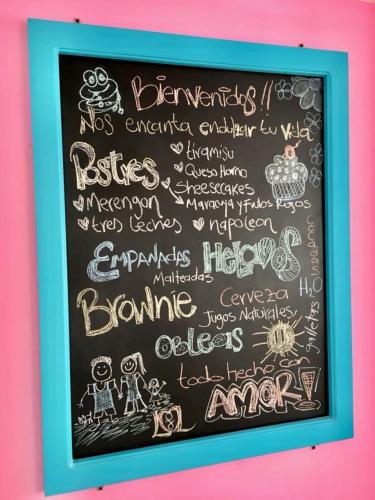 Bienvenidos!!
Nos encanta endulzar tu vida
Postres
tiramisu
Queso Horno
Sheesecakes
Maracuya y Frutos Rojos
Merengon
tres leches
napoleon
EMPANADAS
HELADOS
Malteadas
Brownie
Cerveza
Jugos Naturales
Obleas
H2O
galletas
todo hecho con
AMOR!